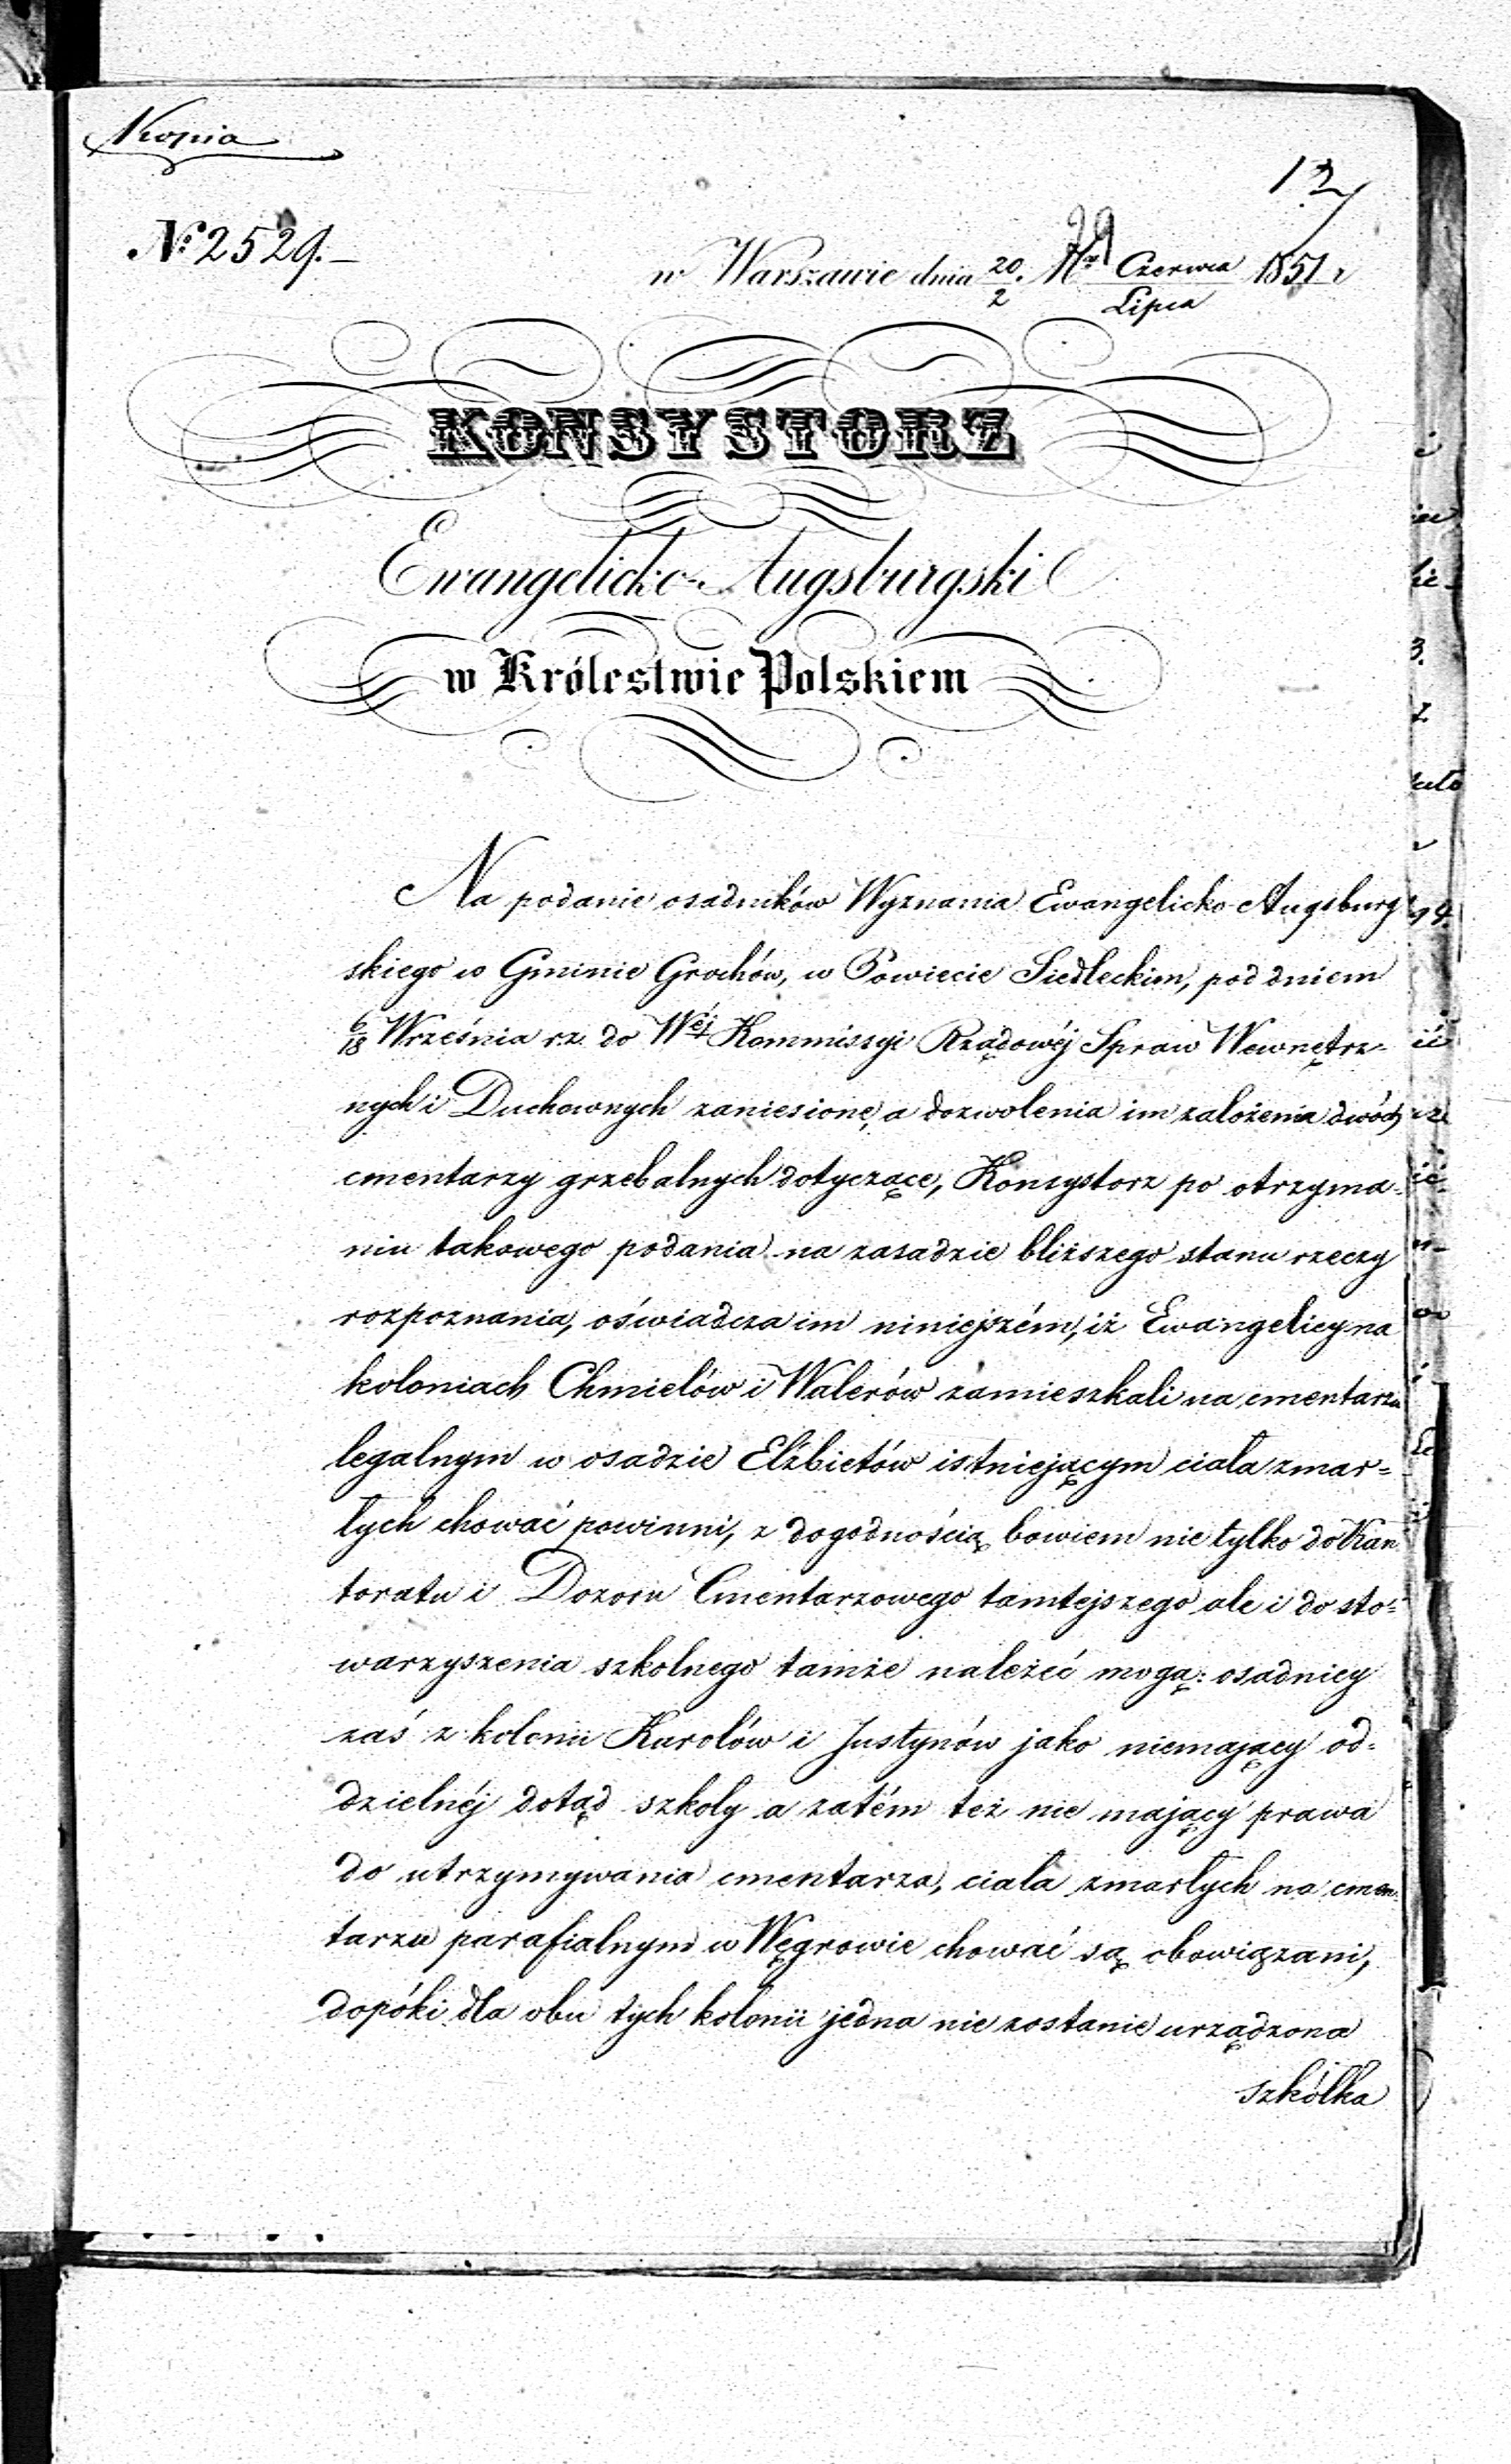 Kopia
12
№ 2529.
w Warszawie dnia 20/2 Czerwca/Lipca 1851 r
KONSYSTORZ
Ewangelicko-Augsburgski
w Królestwie Polskiem
Na podanie osadników Wyznania Ewangelicko-Augsburg
skiego w Gminie Grochów, w Powiecie Siedleckim, pod dniem
6/18 Września rz. do Wéj Kommissyi Rządowéj Spraw Wewnętrz-
nych i Duchownych zaniesione, a dozwolenia im założenia dwóch
cmentarzy grzebalnych dotyczące, Konsystorz po otrzyma-
niu takowego podania na zasadzie bliższego stanu rzeczy
rozpoznania, oświadcza im niniejszém, iż Ewangelicy na
koloniach Chmielów i Walerów zamieszkali na cmentarzu
legalnym w osadzie Elżbietów istniejącym ciała zmar=
łych chować powinni, z dogodnością bowiem nie tylko do Kan
toratu i Dozoru Cmentarzowego tamtejszego ale i do sto=
warzyszenia szkolnego tamże należeć mogą: osadnicy
zaś z kolonii Karolów i Justynów jako niemający od=
dzielnéj dotąd szkoly a zatém też nie mający prawa
do utrzymywania cmentarza, ciała zmarłych na cmen-
tarzu parafialnym w Węgrowie chować są obowiązani,
dopóki dla obu tych kolonii jedna nie zostanie urządzona
szkółka